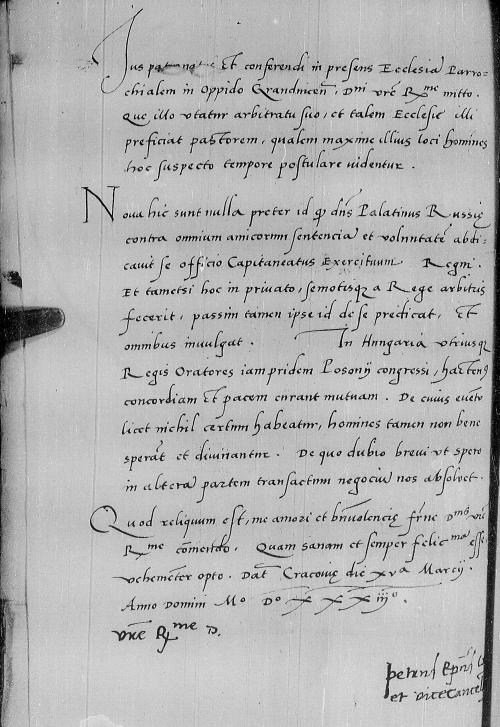 Jus patronatus Et conferendi in presens Ecclesia Parro-
chialem in Oppido Grandnicen̄. Dn̄i vrē R^me mitto.
Que illo vtatur arbitratu suo, et talem Ecclesię illi
preficiat pastorem, qualem maxime illius loci homines
hoc suspecto tempore postulare videntur.
Noua hic sunt nulla preter id qđ dn̄s Palatinus Russię
contra omnium amicorum sententia et voluntatē abdi-
cauit se officio Capitaneatus Exercituum Regni.
Et tametsi hoc in priuato, semotisq a Rege arbitris
fecerit, passim tamen ipse id de se predicat, Et
omnibus inuulgat. In Hungaria vtriusq
Regis Oratores iampridem Posonij congressi, hactenus
concordiam Et pacem curant mutuam. De cuius euētu
licet nichil certum habeatur, homines tamen non bene
sperāt et diuinantur. De quo dubio breui vt spero
in alterā partem transactum negociū nos absoluet.
Quod reliquum est, me amori et bn̄uolencię frn̄e D^nis vrē
R^me cōmendo. Quam sanam et semper felic^ma esse
vehemēter opto. Dat̄ Cracouię die xv^a Marcij.
Anno Domini M^o D^o x x x iiij^o.
vrē R^me D.
petrus Ep̄us
et vicecancell